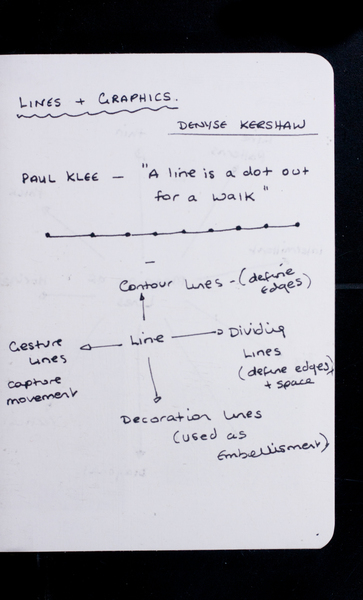 LINES + GRAPHICS.
DENYSE KERSHAW
PAUL KLEE — "A line is a dot out
for a walk"
Contour lines - (define
edges)
Gesture
lines
capture
movement
Line
Dividing
Lines
(define edges)
+ space
Decoration lines
(used as
Embellisment)